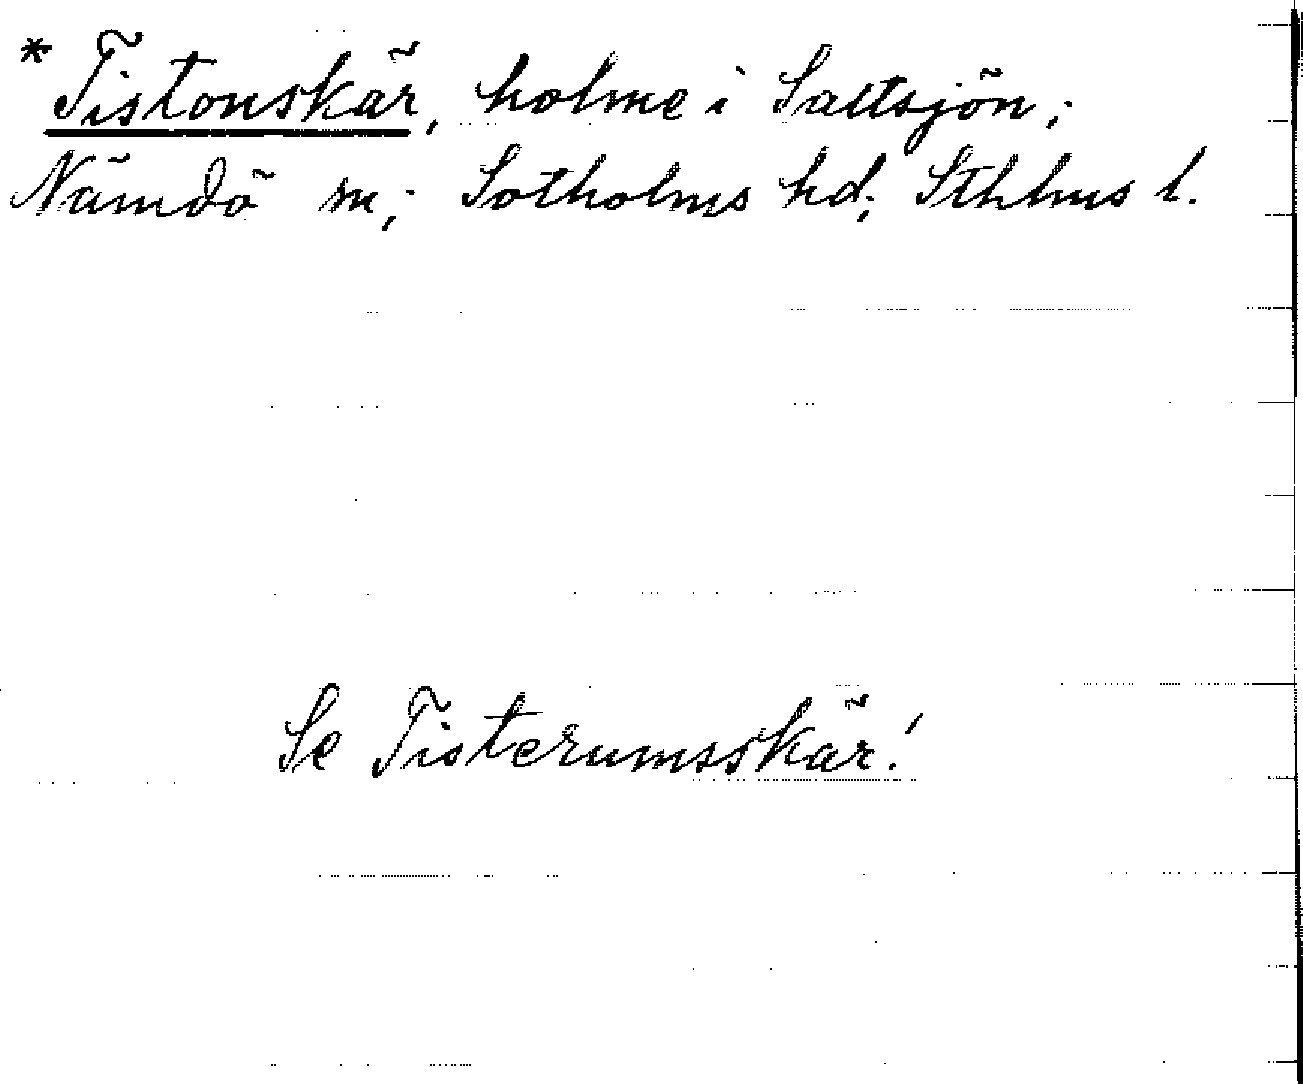 *Tistonskär, holme i Saltsjön;
Nämdö sn; Sotholms hd; Sthlms l.
Se Tisterumsskär!